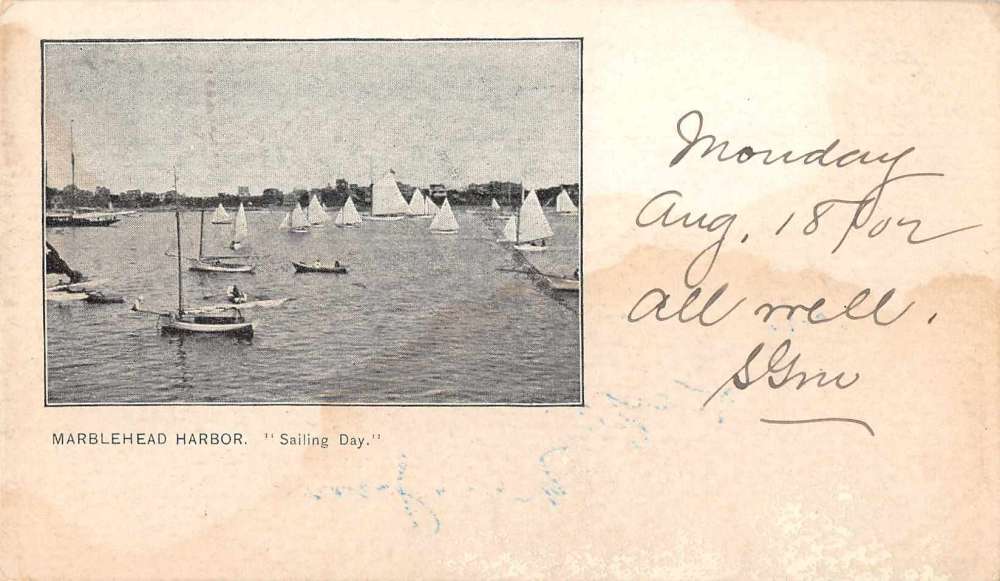 MARBLEHEAD HARBOR. "Sailing Day."
Monday
Aug. 18/02
All well.